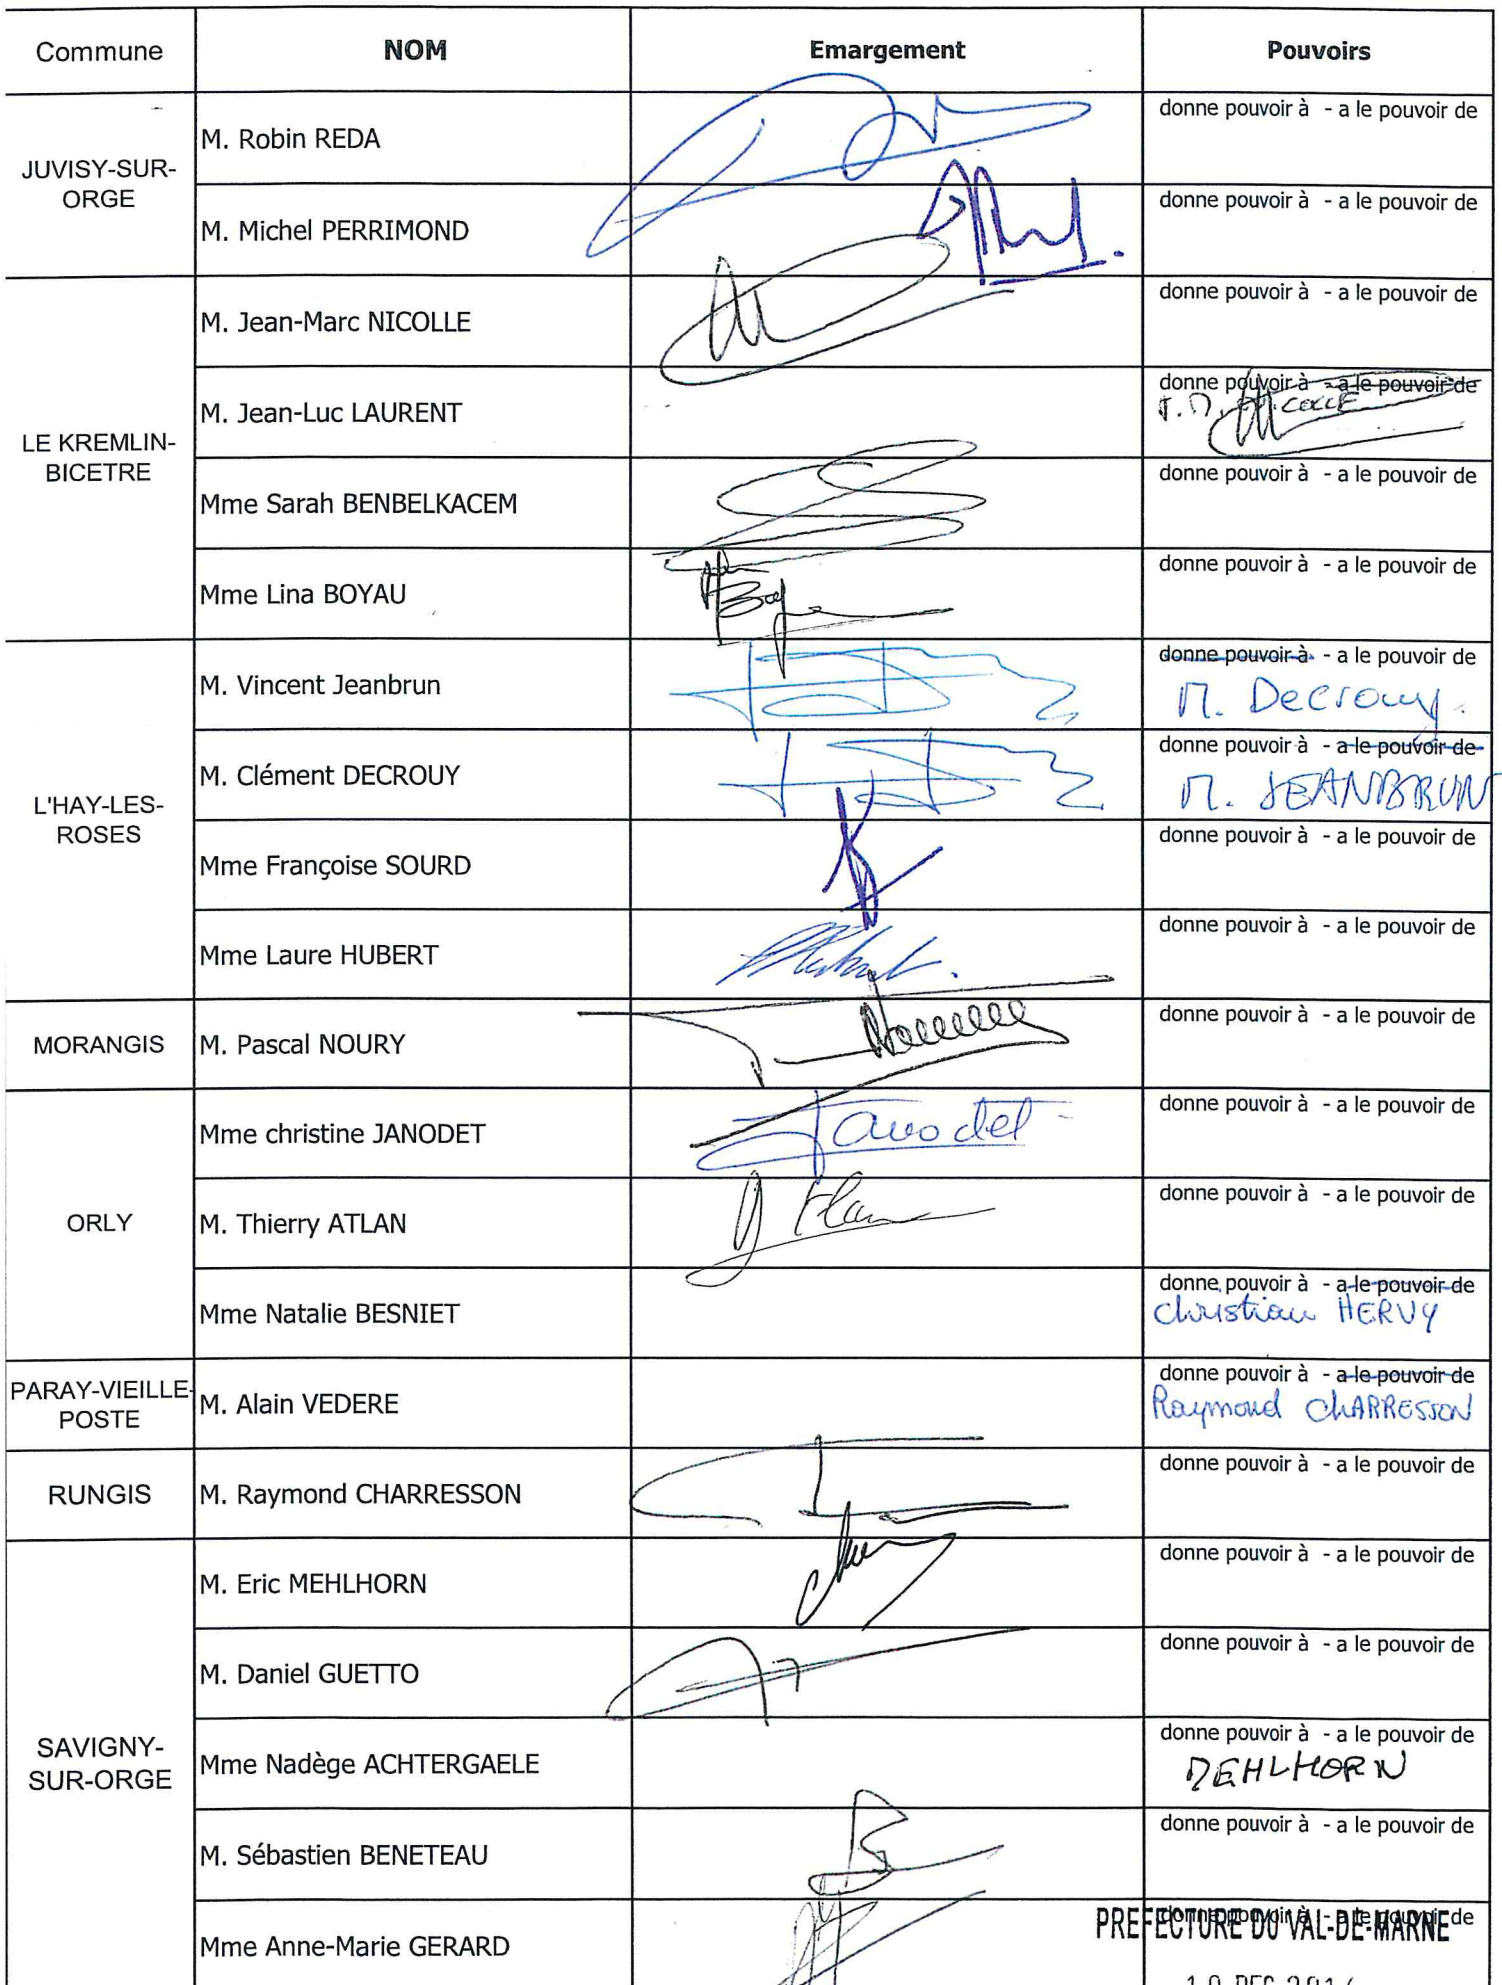 Commune NOM Emargement Pouvoirs
JUVISY-SUR-
ORGE
M. Robin REDA
donne pouvoir à - a le pouvoir de
M. Michel PERRIMOND
donne pouvoir à - a le pouvoir de
LE KREMLIN-
BICETRE
M. Jean-Marc NICOLLE
donne pouvoir à - a le pouvoir de
M. Jean-Luc LAURENT
donne pouvoir à - a le pouvoir de
Mme Sarah BENBELKACEM
donne pouvoir à - a le pouvoir de
Mme Lina BOYAU
donne pouvoir à - a le pouvoir de
L'HAY-LES-
ROSES
M. Vincent Jeanbrun
donne pouvoir à - a le pouvoir de
M. Decrouy.
M. Clément DECROUY
donne pouvoir à - a le pouvoir de
M. JEANBRUN
Mme Françoise SOURD
donne pouvoir à - a le pouvoir de
Mme Laure HUBERT
donne pouvoir à - a le pouvoir de
MORANGIS
M. Pascal NOURY
donne pouvoir à - a le pouvoir de
ORLY
Mme christine JANODET
Janodet
donne pouvoir à - a le pouvoir de
M. Thierry ATLAN
donne pouvoir à - a le pouvoir de
Mme Natalie BESNIET
donne pouvoir à - a le pouvoir de
Christian HERVY
PARAY-VIEILLE-
POSTE
M. Alain VEDERE
donne pouvoir à - a le pouvoir de
Raymond CHARRESSON
RUNGIS
M. Raymond CHARRESSON
donne pouvoir à - a le pouvoir de
SAVIGNY-
SUR-ORGE
M. Eric MEHLHORN
donne pouvoir à - a le pouvoir de
M. Daniel GUETTO
donne pouvoir à - a le pouvoir de
Mme Nadège ACHTERGAELE
donne pouvoir à - a le pouvoir de
MEHLHORN
M. Sébastien BENETEAU
donne pouvoir à - a le pouvoir de
Mme Anne-Marie GERARD
donne pouvoir à - a le pouvoir de
PREFECTURE DU VAL-DE-MARNE